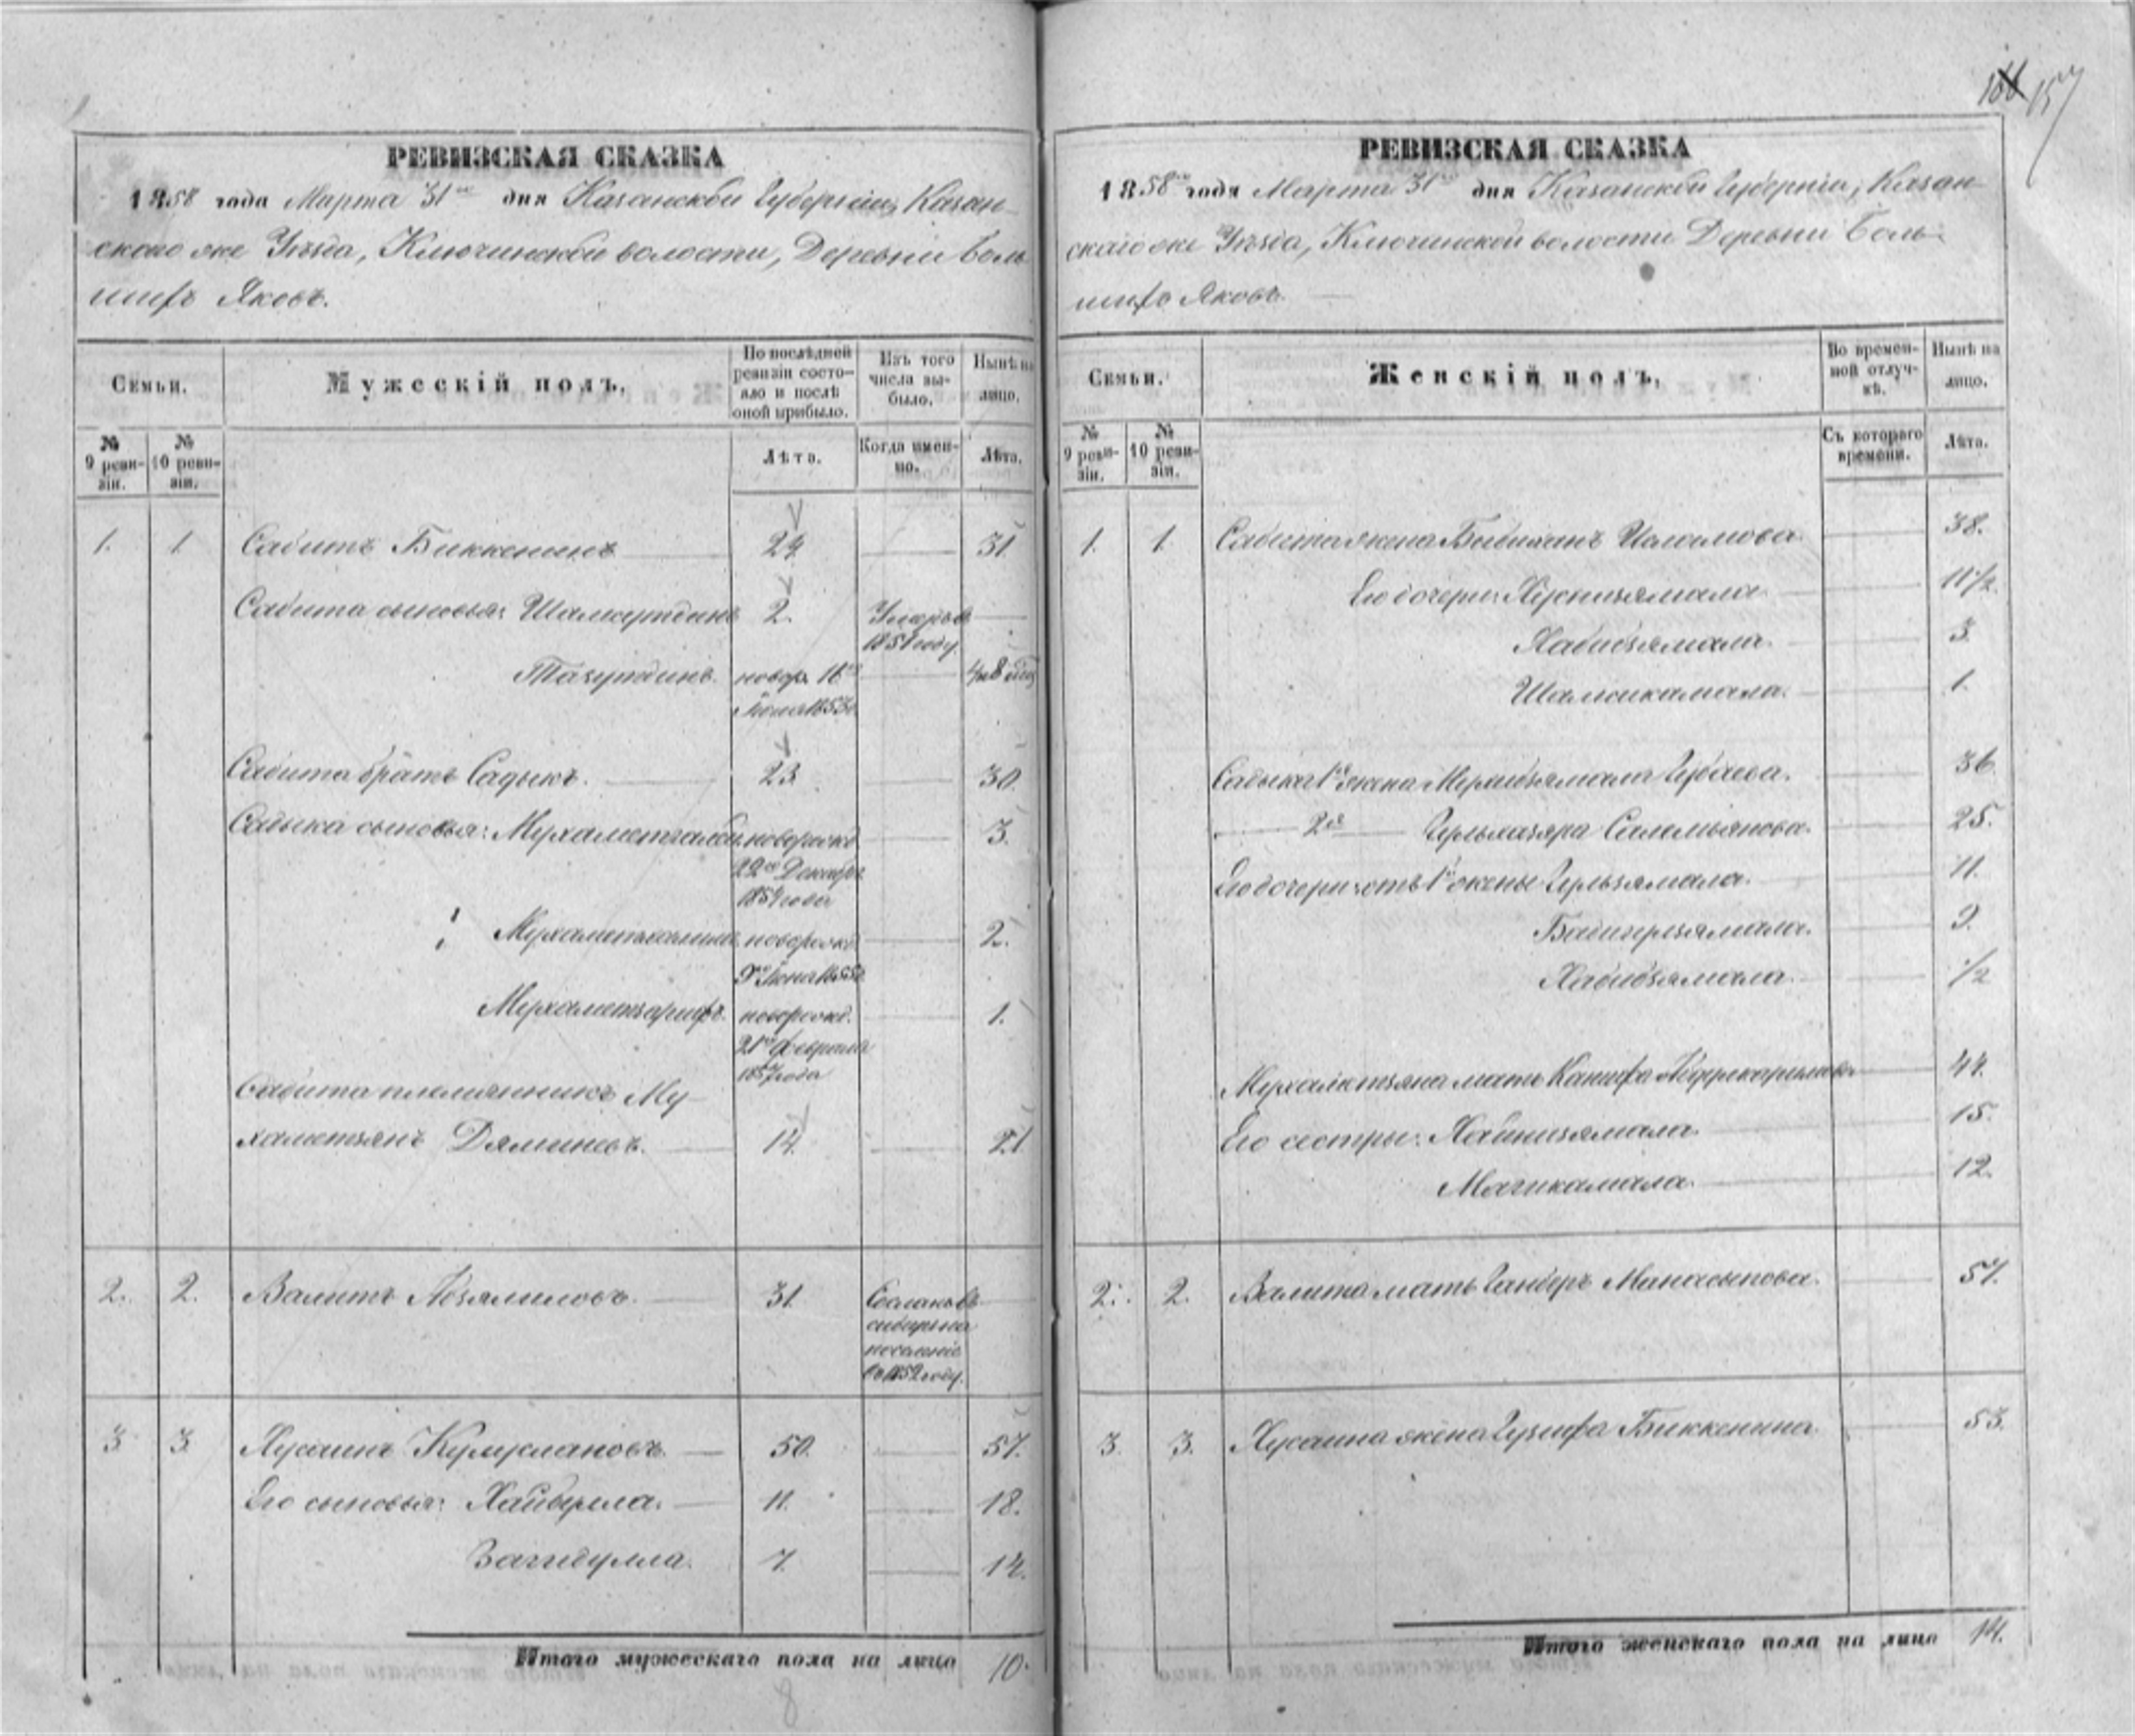 157
РЕВИЗСКАЯ СКАЗКА
1858 года Марта 31го дня Казанской Губерніи, Казан-
скаго же Уѣзда, Ключинской волости, Деревни Боль-
шихъ Яковъ.
Семьи.
Мужескій полъ.
По послѣдней ревизіи состояло и послѣ оной прибыло.
Изъ того числа выбыло.
Нынѣ на лицо.
№ 9 ревизіи.
№ 10 ревизіи.
Лѣта.
Когда именно.
Лѣта.
1. 1. Сабитъ Биккенинъ 24. 31.
Сабита сыновья: Шамсутдинъ 2. Умеръ въ
1851 году.
Тазутдинъ. новор. 16го
Іюля 1853г.
Сабита братъ Садыкъ. 23. 30.
Садыка сыновья: новорожд. 3.
22го Декабря
1854 года
новорожд. 2.
9го Іюня 1855г.
Мухаметзарифъ. новорожд. 1.
21го Февраля
1857 года
Сабита племянникъ Му-
хаметзянъ Дяминевъ. 14. 21.
2. 2. Валитъ Абзялиловъ. 31. Сосланъ въ
сибирь на
поселеніе
въ 1852 году.
3. 3. Хусаинъ Кулуслановъ. 50. 57.
Его сыновья: Хайбулла. 11. 18.
Загидулла. 7. 14.
Итого мужескаго пола на лицо 10.
8
РЕВИЗСКАЯ СКАЗКА
1858го года Марта 31го дня Казанской Губерніи, Казан-
скаго же Уѣзда, Ключинской волости Деревни Боль-
шихъ Яковъ.
Семьи.
Женскій полъ.
Во временной отлучкѣ.
Нынѣ на лицо.
№ 9 ревизіи.
№ 10 ревизіи.
Съ котораго времени.
Лѣта.
1. 1. Сабита жена Бибиханъ 38.
Его дочери: Хуснизямала 11½.
Хабибзямала. 3.
Шамсикамала. 1.
Садыка 1я жена Губаева. 36.
2я Гульхазяра 25.
Его дочери: отъ 1й жены Гульзямала. 11.
Бадигулзямала. 9.
Хабибзямала. ½
Мухаметзяна мать Ханифа 44.
Его сестры: Хайнизямала. 15.
Магикамала. 12.
2. 2. Валита мать Манасыпова. 57.
3. 3. Хусаина жена Гузифа Биккенина. 53.
Итого женскаго пола на лицо 14.